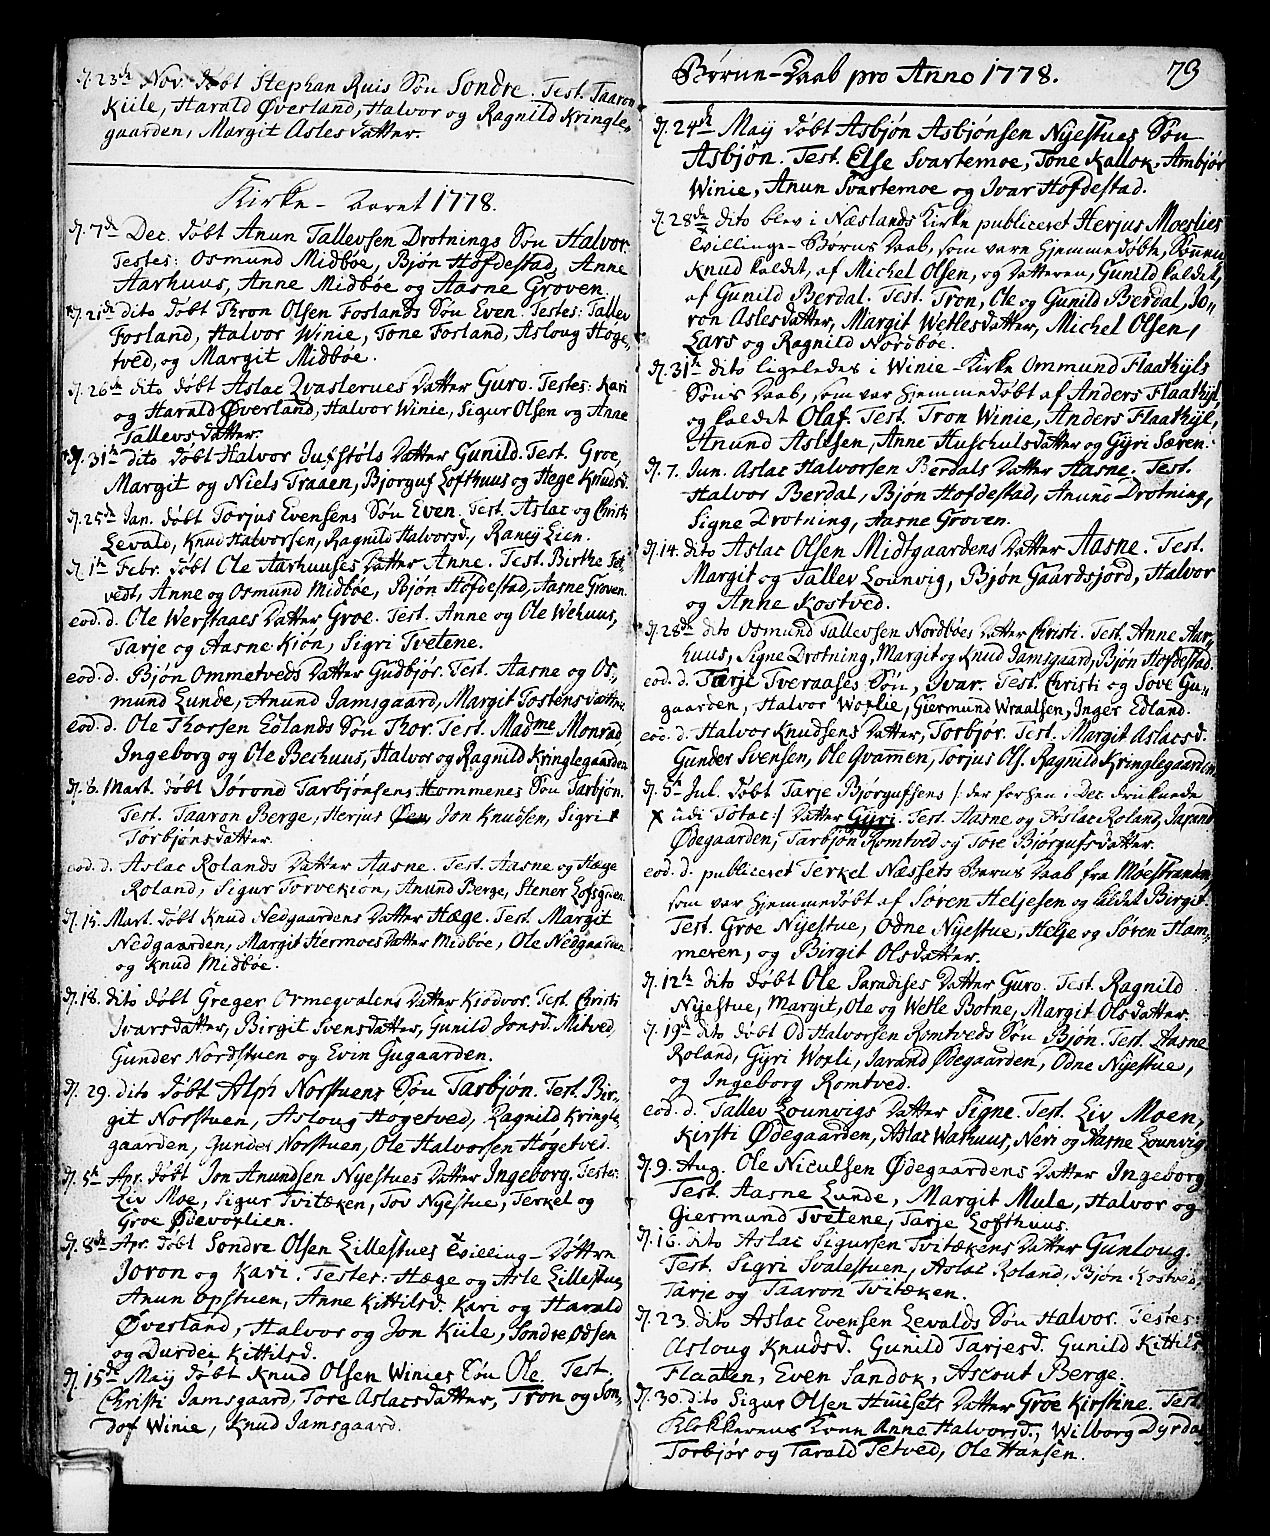 d. 23de Nov. døbt Stephan Ruis Søn Sondre. Test. Taaron
Kiile, Harald Øverland, Halvor og Ragnild Kringle-
gaarden, Margit Aslesdatter.
Kirke-Aaret 1778.
d. 7de Dec. døbt Anun Tallevsen Drotnings Søn Halvor.
Testes: Osmund Midbøe, Bjøn Hofdestad, Anne
Aarhuus, Anne Midbøe og Aasne Groven.
d. 21de dito døbt Thron Olsen Foslands Søn Even. Testes: Tallev
Fosland, Halvor Winie, Tone Forland, Asloug Hoge-
tved, og Margit Midbøe.
d. 26de dito døbt Aslac Qvasternes Datter Guro. Testes: Kari
og Harald Øverland, Halvor Winie, Sigur Olsen og Anne
Tallevsdatter.
d. 31te dito døbt Halvor Jufstøls Datter Gunild. Test. Groe,
Margit og Niels Traaen, Bjørguf Lofthuus og Hege Knudsd.
d. 25de Jan. døbt Torjus Evensens Søn Even. Test. Aslac og Christi
Levald, Knud Halvorsen, Ragnild Halvorsd., Rancij Lien.
d. 1te Febr. døbt Ole Aarhuuses Datter Anne. Test. Birthe
vedt, Anne og Osmund Midbøe, Bjøn Hofdestad, Aasne Groven.
eod. d. Ole Werstaaes Datter Groe. Test. Anne og Ole Wehuus,
Tarje og Aasne Kiøn, Sigri Tvetene.
eod. d. Bjøn Ommetveds Datter Gudbjør. Test. Aasne og Os-
mund Lunde, Anund Jamsgaard, Margit Tostensdatter.
eod. d. Ole Thorsen Edlands Søn Thor. Test. Madme Monrad,
Ingeborg og Ole Berhuus, Halvor og Ragnild Kringlegaarden.
d. 8. Mart. døbt Jørond Tarbjønsens Hommenes Søn Tarbjøn.
Test. Taaron Berge, Herjus Øen, Jon Knudsen, Sigri
Torbjønsdatter.
eod. d. Aslac Rolands Datter Aasne. Test. Aasne og Hæge
Roland, Sigur Torvekiøn, Anund Berge, Stener Lofsgaen.
d. 15. Mart. døbt Knud Nedgaardens Datter Hæge. Test. Margit
Nedgaarden, Margit Hermoesdatter Midbøe, Ole Nedgaarden
og Knud Midbøe.
d. 18. dito døbt Greger Ormegvalens Datter Kiødvor. Test. Christi
Ivarsdatter, Birgit Svensdatter, Gunild Jonsd. Mitved,
Gunder Nordstuen og Evin Gugaarden.
d. 29. dito døbt Alph Norstuens Søn Tarbjøn. Test. Bir-
git Norstuen, Asloug Hogetved, Ragnild Kringle-
gaarden, Gunder Norstuen, Ole Halvorsen Høgetved.
d. 5te Apr. døbt Jon Anundsen Nyestues Datter Ingeborg. Testes:
Liv Moe, Sigur Tvitæken, Tov Nyestue, Terkel og
Groe Ødevorlien.
d. 8de Apr. døbt Sondre Olsen Lillestues Tvilling-Døttre
Joron og Kari. Testes: Hæge og Asle Lillestue,
Anun Opstuen, Anne Kittilsd. Kari og Harald
Øverland, Halvor og Jon Kiile, Sondre Ødsen
og Durdei Kittilsd.
d. 15de Maij døbt Knud Olsen Winies Søn Ole. Test.
Christi Jamsgaard, Tore Aslacsdatter, Tron og Son-
dof Winie, Knud Jamsgaard.
Børne-Daab pro Anno 1778. 79
d. 24de Maij døbt Asbjøn Asbjønsen Nyestues Søn
Asbjøn. Test. Else Svartemoe, Tone Kallok, Ambjør
Winie, Anun Svartemoe og Ivar Hofdestad.
d. 28de dito blev i Næslands Kirke publiceret Herjus Moeslies
Tvillinge-Børns Daab, som vare hjemmedøbte, Sønnen
Knud kaldet, af Michel Olsen, og Datteren, Gunild kaldet,
af Gunild Berdal. Test. Tron, Ole og Gunild Berdal, Jo-
ron Aslesdatter, Margit Wetlesdatter, Michel Olsen,
Lars og Ragnild Norbøe.
d. 31te dito ligeledes i Winie-Kirke Ommund Flaathyls
Søns Daab, som var hjemmedøbt af Anders Flaathyl,
og kaldet Olaf. Test. Tron Winie, Anders Flaathyl,
Anund Aslesen, Anne Auschulsdatter og Gyri Særen.
d. 7. Jun. Aslac Halvorsen Berdals Datter Aasne. Test.
Halvor Berdal, Bjøn Hofdestad, Anund Drotning,
Signe Drotning, Aasne Groven.
d. 14. dito Aslac Olsen Midtgaardens Datter Aasne. Test.
Margit og Tallev Lounvig, Bjøn Gaardsjord, Halvor
og Anne Kostved.
d. 28de dito Osmund Tallevsen Nordbøes Datter Christi. Test. Anne Aar-
huus, Signe Drotning, Margit og Knud Jamsgaard, Bjøn Hofdestad.
eod. d. Tarje Tveraases Søn, Ivar. Test. Christi og Tove Gu-
gaarden, Halvor Woxlie, Giermund Wraalsen, Inger Edland.
eod. d. Halvor Knudsens Datter, Torbjør. Test. Margit Aslacsd.
Gunder Svensen, Ole Qvammen, Torjus Ols. Ragnild Kringlegaarden
d. 5te Jul. døbt Tarje Bjørgufsens /: der forhen i Dec. druknede
x udi Totac :/ Datter Gyri. Test. Aasne og Aslac Roland, Jarand
Ødegaarden, Tarbjøn Romtved og Tore Bjørgufsdatter.
eod. d. publiceret Terkel Næssets Barns Daab fra Møestranden,
som var hjemmedøbt af Søren Heljesen og kaldet Birgit.
Test. Groe Nyestue, Odne Nyestue, Helje og Søren Ham-
meren, og Birgit Olsdatter.
d. 12te dito døbt Ole Paradises Datter Guro. Test. Ragnild
Nyestue, Margit, Ole og Wetle Botne, Margit Olsdatter.
d. 19de dito døbt Od Halvorsen Romtveds Søn Bjøn. Test. Aasne
Roland, Gyri Woxli, Jarand Ødegaarden, Odne Nyestue,
og Ingeborg Romtved.
eod. d. Tallev Lounvigs Datter Signe. Test. Liv Moen,
Kirsti Ødegaarden, Aslac Warhuus, Neri og Aasne Lounvig
d. 9. Aug. Ole Niculsen Ødegaardens Datter Ingeborg
Test. Aasne Lunde, Margit Mule, Halvor og
Giermund Tvetene, Tarje Lofthuus.
d. 16. dito Aslac Sigursen Tvitækens Datter Gunloug.
Test. Sigri Svalestuen, Aslac Roland, Bjøn Kostved,
Tarje og Taaron Tvitæken.
d. 23. dito Aslac Evensen Levalds Søn Halvor. Testes:
Asloug Knudsd. Gunild Tarjesd. Gunild Kittilsd
Flaaten, Even Sandok, Ascout Berge.
d. 30. dito Sigur Olsen Huusets Datter Groe Kirstine. Test.
Klokkerens Kone Anne Halvorsd., Wilborg Dyrdal,
Torbjør og Tarald Tetved, Ole Hansen.